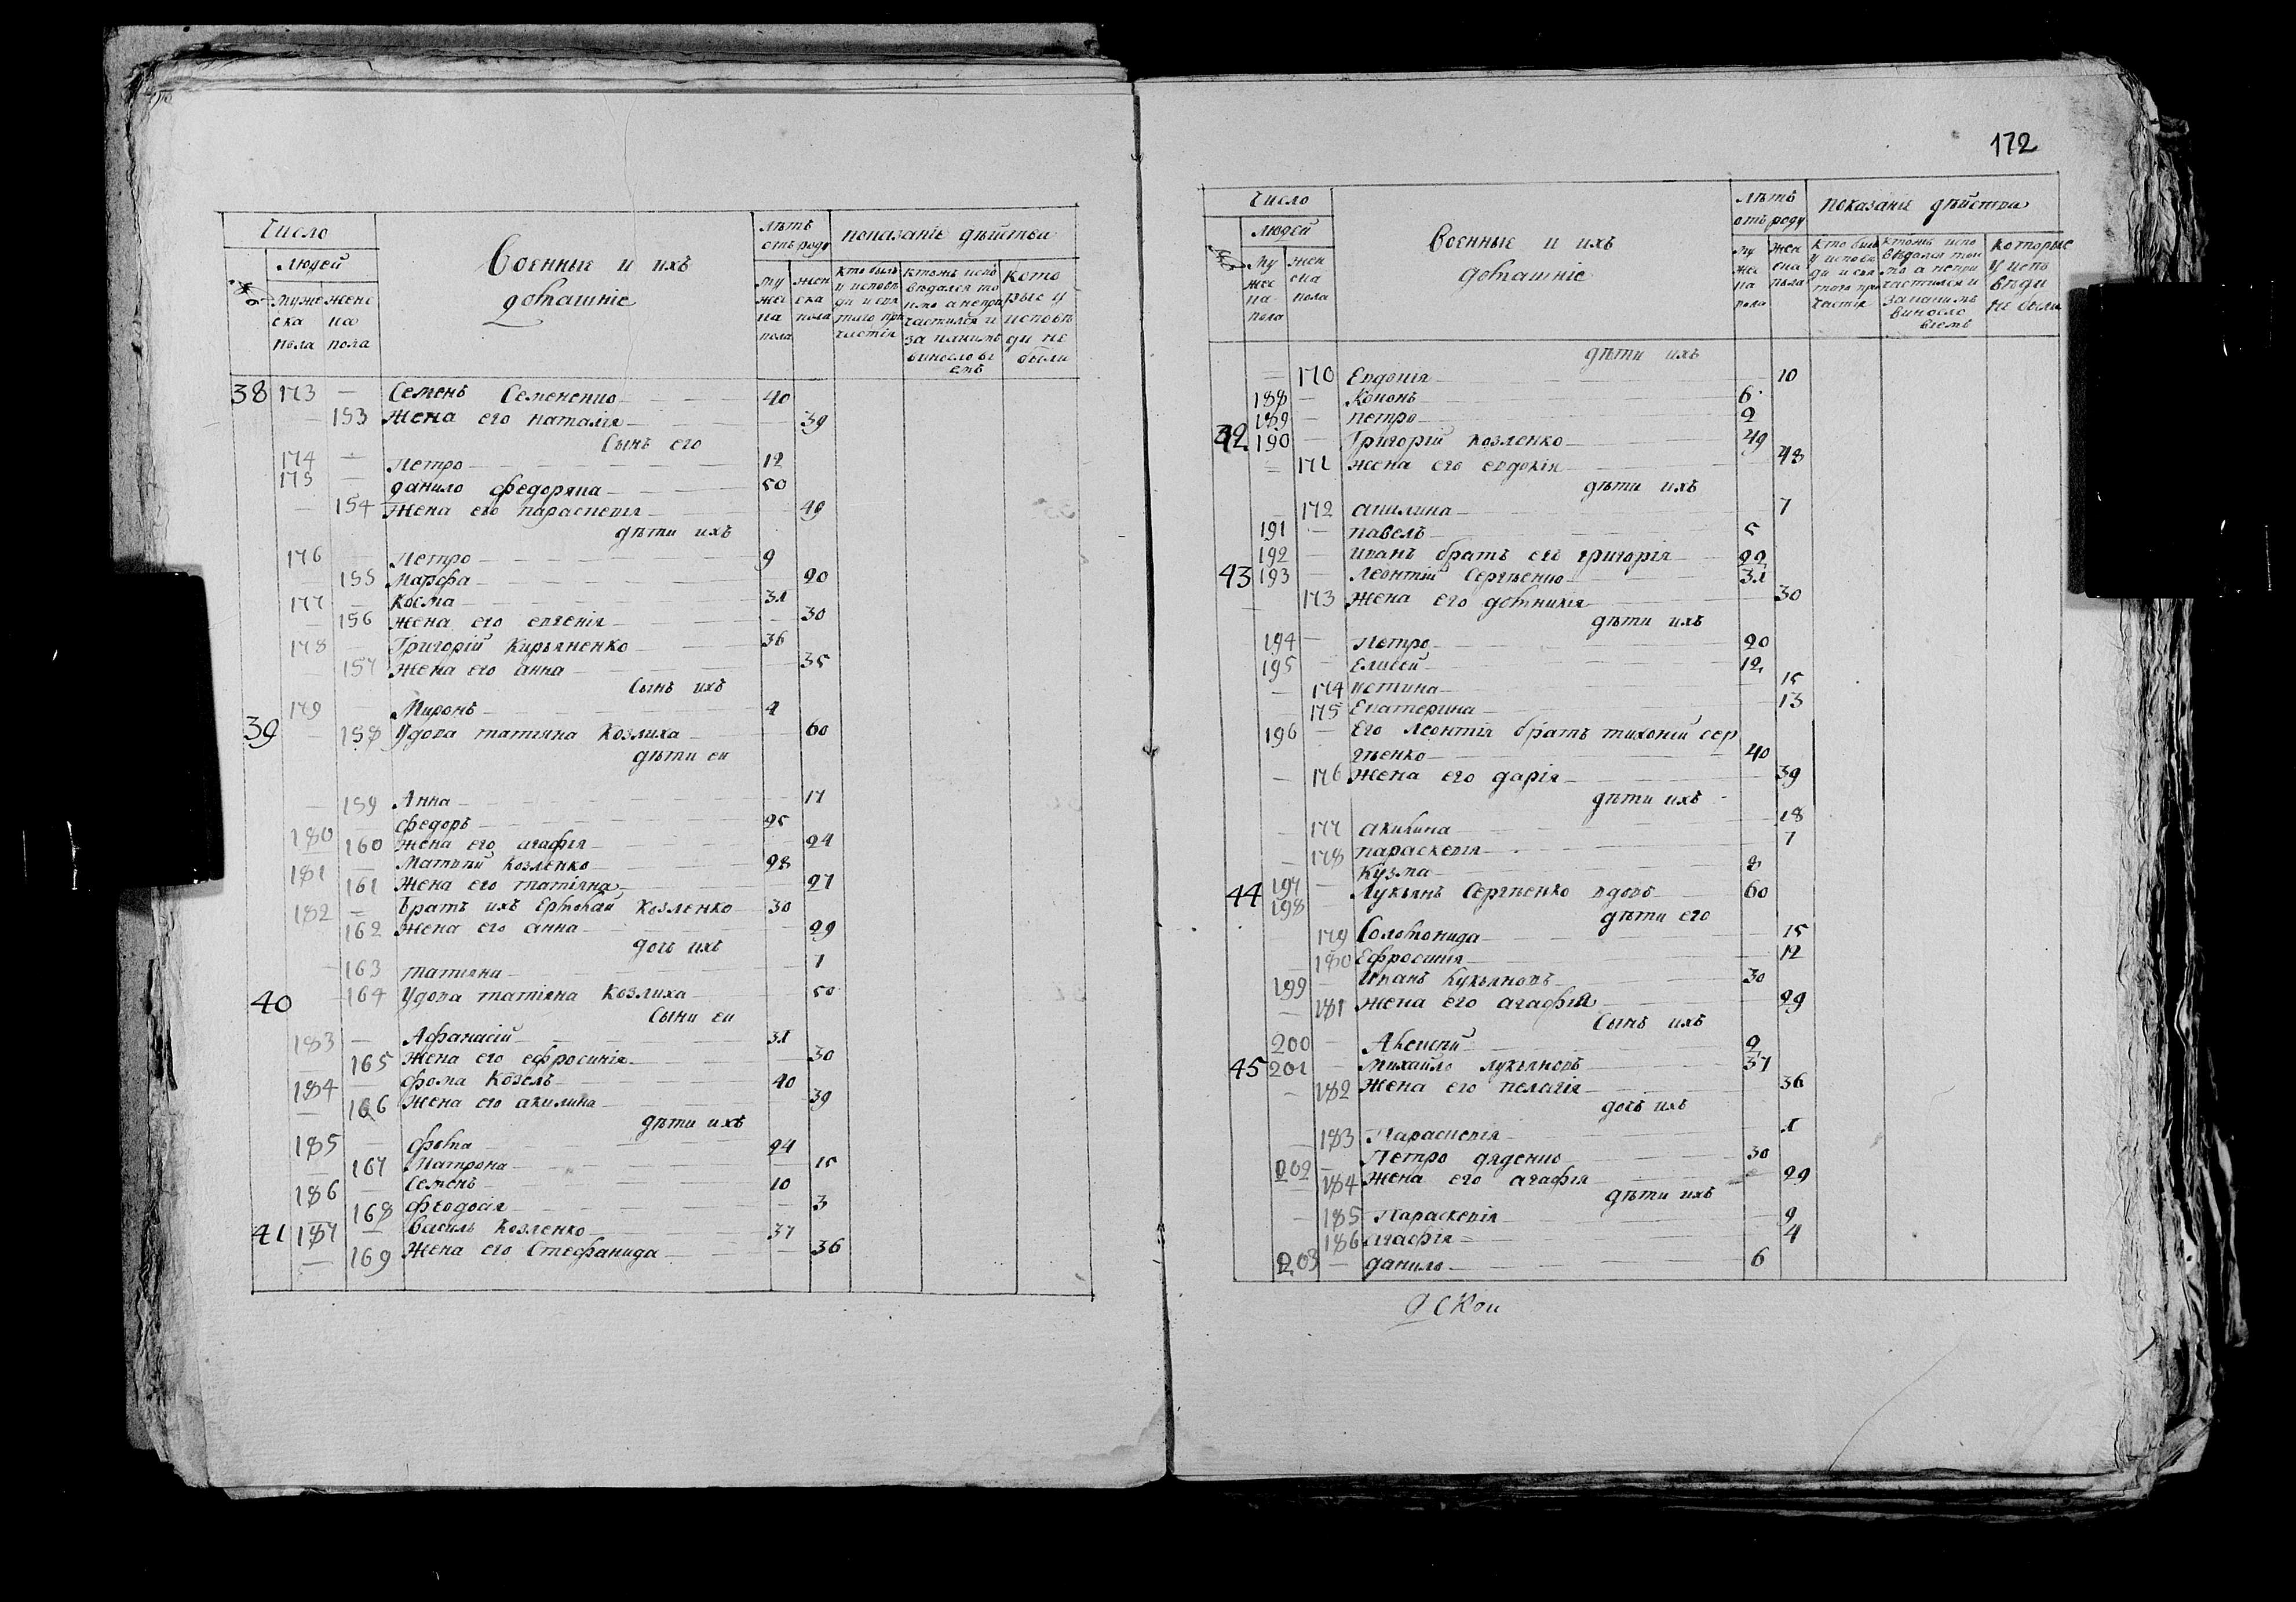 Число
людей
муже
ска
пола
женс
ка
пола
Военныя и ихъ
домашніе
лѣтъ
отъ роду
му
жес
ка
пола
жен
ска
пола
показаніе дѣйства
кто былъ
у исповѣ
ди и свя
таго при
частія
ктожъ испо
вѣдался то
лмо а непри
частился и
за какимъ
винослові
емъ
кото
рые у
исповѣ
ди не
были
38 173 — Семенъ Семененко 40
— 153 Жена его наталія 39
Сынъ его
174 — Петро 12
175 — данило федоряка 50
— 154 Жена его параскевія 49
дѣти ихъ
176 — Петро 9
— 155 Марфа 20
177 — Косма 31
— 156 жена его евгенія 30
178 — Григорій Кирьяненко 36
— 157 Жена его анна 35
Сынъ ихъ
179 — Миронъ 4
39 — 158 Удова татіяна Козлиха 60
дѣти ей
— 159 Анна 17
180 — федоръ 25
160 жена его агафія 24
181 — Матвѣй Козленко 28
161 Жена его татіяна 27
182 — Братъ ихъ Ермолай Козленко 30
162 жена его анна 29
дочь ихъ
— 163 татіяна 1
40 — 164 Удова татіяна Козлиха 50
Сыни ей
183 — Афанасій 31
— 165 Жена его ефросинія 30
184 — фома Козелъ 40
— 166 Жена его акилина 39
дѣти ихъ
185 — фома 24
— 167 Матрона 15
186 — Семенъ 10
— 168 феодосія 3
41 187 — Василь Козленко 37
— 169 Жена его Стефанида 36
172
Число
людей
му
жес
ка
пола
жен
ска
пола
Военные и ихъ
домашніе
лѣтъ
отъ роду
му
жес
ка
пола
жен
ска
пола
показаніе дѣйства
кто былъ
у исповѣ
ди и свя
таго при
частія
ктожъ испо
вѣдался тол
мо а непри
частился и
за какимъ
винослo
віемъ
которые
у испо
вѣди
не были
дѣти ихъ
— 170 Евдокія 10
188 — Кононъ 6
189 — петро 2
42 190 — Григорій Козленко 49
— 171 жена его евдокія 48
дѣти ихъ
— 172 акилина 7
191 — павелъ 5
192 — иванъ братъ его григорія 22
43 193 — Леонтій Сергѣенко 31
— 173 жена его домникія 30
дѣти ихъ
194 — Петро 20
195 — Елисей 12
— 174 истина 15
— 175 Екатерина 13
196 — Его Леонтія братъ тихоній сер
гѣенко 40
— 176 жена его дарія 39
дѣти ихъ
— 177 акилина 18
— 178 параскевія 7
197 — Кузма 8
44 198 — Лукьянъ Сергѣенко вдовъ 60
дѣти его
— 179 Соломонида 15
— 180 Ефросинія 12
199 — Иванъ Лукьяновъ 30
— 181 жена его агафія 29
Сынъ ихъ
200 — Алексій 2
45 201 — Михайло лукьяновъ 37
— 182 Жена его пелагія 36
дочь ихъ
— 183 Параскевія 1
202 — Петро дяденко 30
— 184 жена его агафія 29
дѣти ихъ
— 185 Параскевія 9
— 186 агафія 4
203 — данило 6